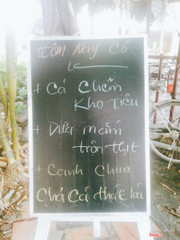 Hôm Nay Có
+ Cá Chẽm
Kho Tiêu
+ Dưa mắm
trộn thịt
+ Canh Chua
Chả Cá thác lác